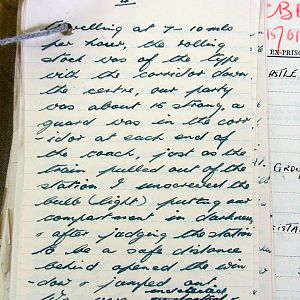 Travelling at 7-10 mls
per hour, the rolling
stock was of the type
with the corridor down
the centre, our party
was about 16 strong, a
guard was in the corr
-idor at each end of
the coach, just as the
train pulled out of the
station I unscrewed the
bulb (light) putting our
compartment in darkness
& after judging the station
to be a safe distance
behind opened the win
dow & jumped out.
We were
EX-PRISO
ASTLE,
GROU
ISTA